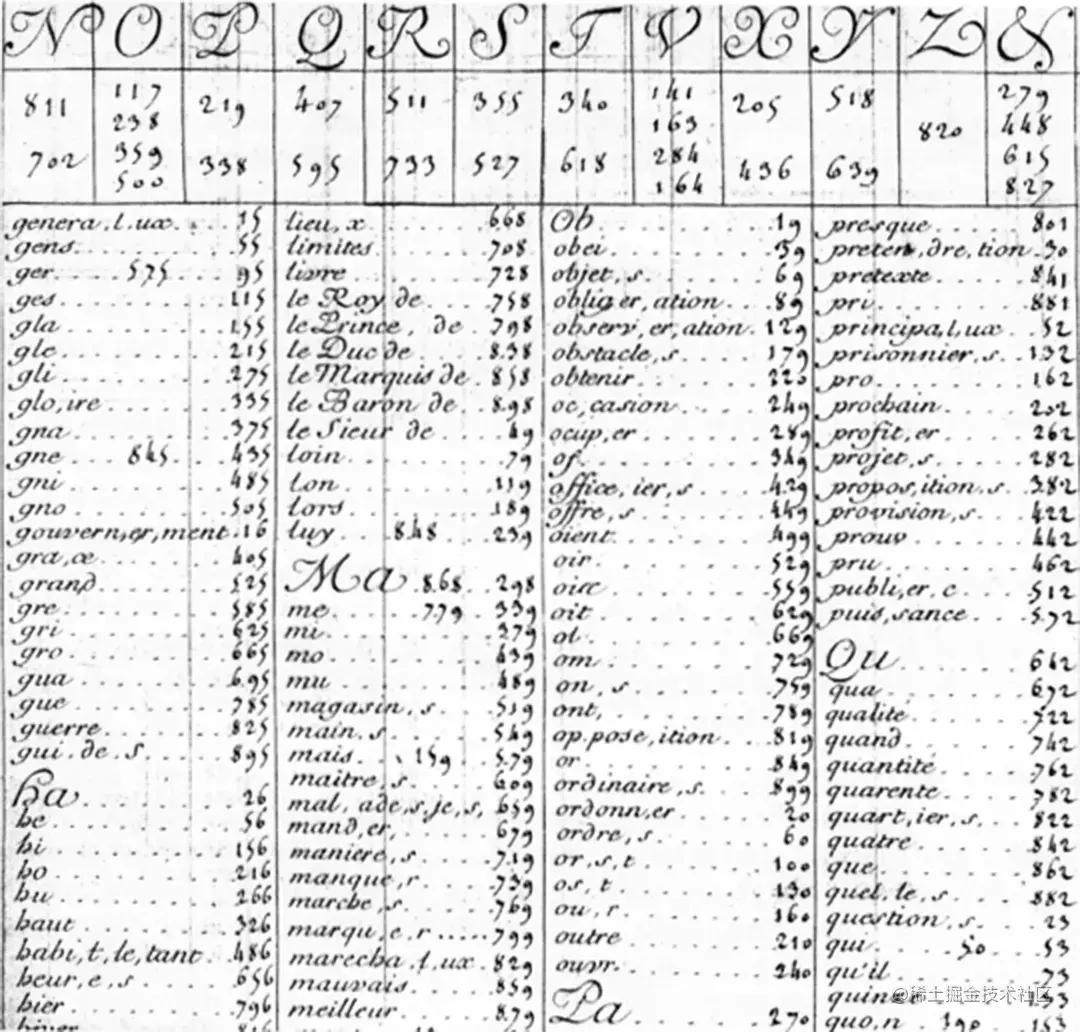 N O P Q R S T V X Y Z &
811 117 219 407 511 355 340 141 205 518 820 279
238 163 448
702 359 338 595 733 527 618 284 436 639 615
500 164 827
genera,l.ux 15
gens 55
ger 575 95
ges 115
gla 155
gle 215
gli 275
glo,ire 335
gna 375
gne 845 435
gni 485
gno 505
gouvern,er,ment 16
gra,æ 405
grand 525
gre 585
gri 625
gro 665
gua 695
gue 785
guerre 825
gui.de.s 895
ha 26
he 56
hi 156
ho 216
hu 266
haut 326
habi,t,le,tant 486
heur,e,s 656
hier 796
lieu,x 668
limites 708
livre 728
le Roy de 758
le Prince, de 798
le Duc de 838
le Marquis de 858
le Baron de 898
le Sieur de 49
loin 79
lon 119
lors 189
luy 848 239
Ma 868 298
me 779 339
mi 379
mo 439
mu 489
magasin,s 519
main.s 549
mais 159 579
maitre,s 609
mal,ade,s,je,s, 659
mand,er, 679
maniere,s 719
manque,r 739
marche,s 769
marqu,e,r 799
marecha,l,ux 829
mauvais 859
meilleur 879
Ob 19
obei 39
objet,s 69
oblig,er,ation 89
observ,er,ation 129
obstacle,s 179
obtenir 220
oc,casion 249
ocup,er 289
of 349
office,ier,s 429
offre,s 449
oient 499
oir 529
oise 559
oit 629
ol 669
om 729
on,s 759
ont, 789
op.pose,ition 819
or 849
ordinaire,s 899
ordonn,er 20
ordre,s 60
or,s,t 100
os,t 130
ou,r 160
outre 210
ouvr 240
Pa 270
presque 801
preten,dre,tion 30
pretexte 841
pri 881
principa,l,ux 52
prisonnier,s 132
pro 162
prochain 202
profit,er 262
projet,s 282
propos,ition,s 382
provision,s 422
prouv 442
pru 462
publi,er,c 512
puis,sance 572
Qu 642
qua 692
qualité 722
quand 742
quantité 762
quarente 782
quart,ier,s 822
quatre 842
que 862
quel,le,s 882
question,s 23
qui 50 53
qu'il 73
@稀土掘金技术社区
quo,n 190 153